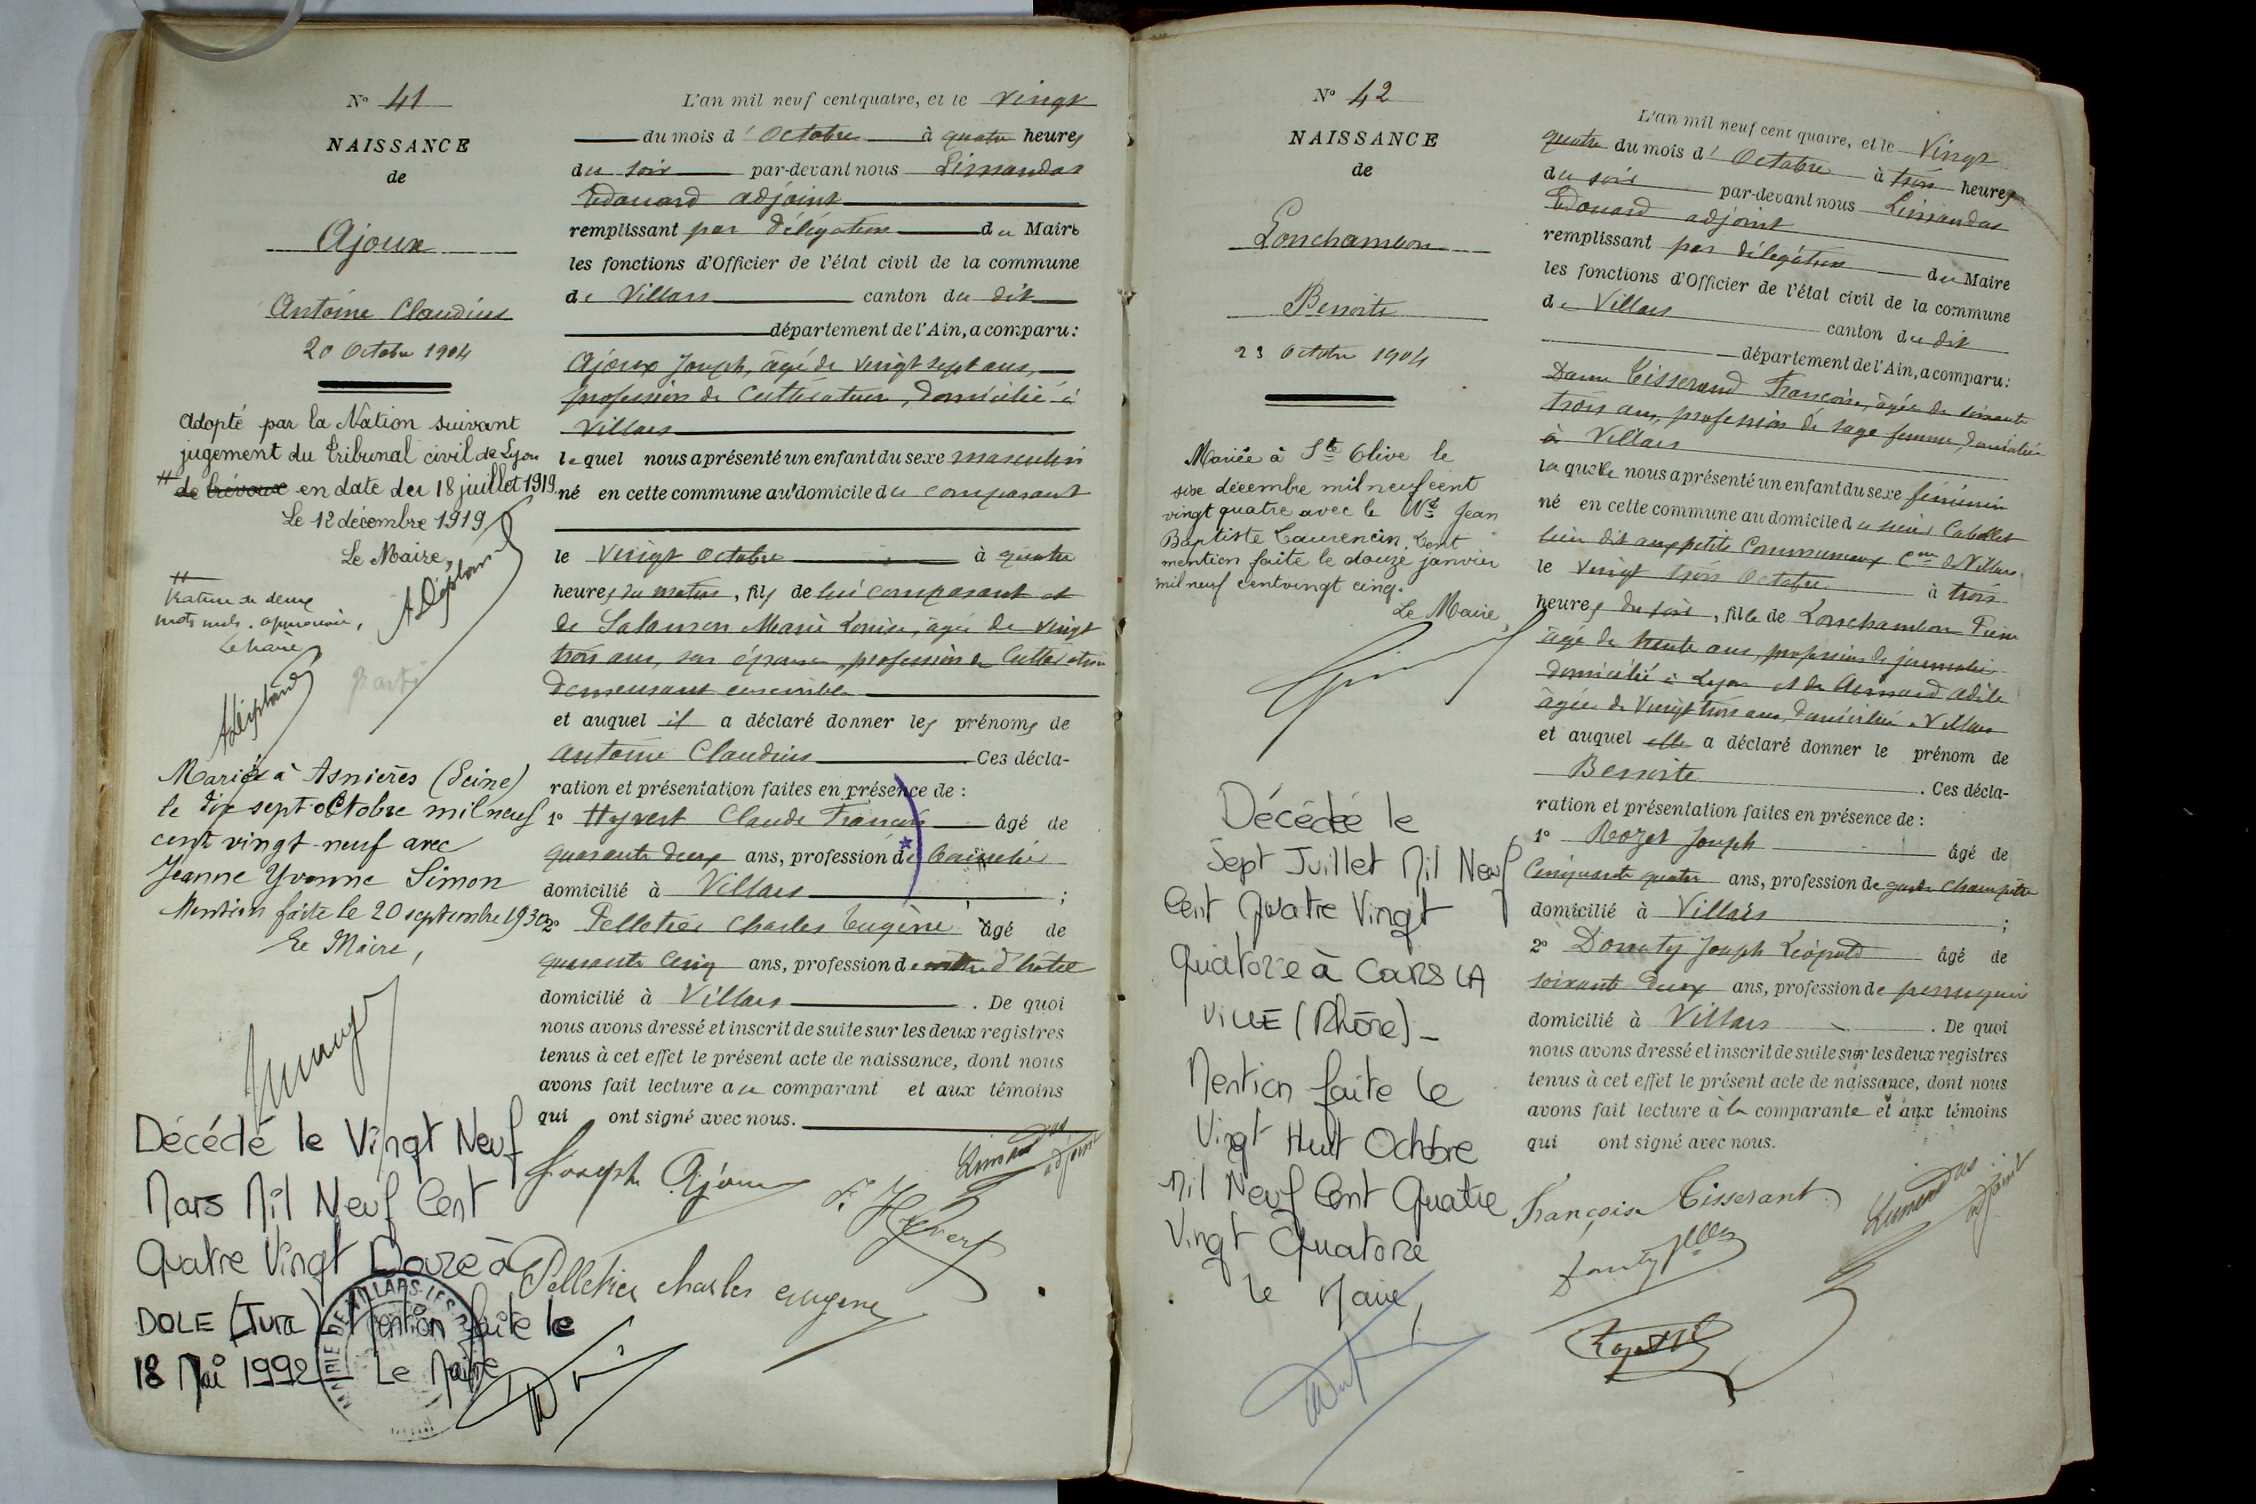 N° 41
NAISSANCE
de
Ajoux
Antoine Claudius
20 Octobre 1904
Adopté par la Nation suivant
jugement du Tribunal civil de Lyon
de Trévoux en date du 18 juillet 1919
Le 12 décembre 1919
Le Maire,
Rature de deux
mots nuls. approuvée,
Le Maire
Marié à Asnières (Seine)
le dix sept octobre mil neuf
cent vingt-neuf avec
Jeanne Yvonne Simon
Mention faite le 20 septembre 1930
Le Maire,
Décédé le Vingt Neuf
Mars Mil Neuf Cent
Quatre Vingt Douze à
DOLE (Jura) Mention faite le
18 Mai 1992 Le Maire
MAIRIE DE VILLARS-LES-D
L'an mil neuf cent quatre, et le vingt
du mois d'Octobre à quatre heures
du soir par-devant nous Limandas
Edouard adjoint
remplissant par délégation du Maire
les fonctions d'Officier de l'état civil de la commune
de Villars canton du dit
département de l'Ain, a comparu:
Ajoux Joseph, âgé de vingt sept ans,
profession de Cultivateur, domicilié à
Villars
lequel nous a présenté un enfant du sexe masculin
né en cette commune au domicile du comparant
le vingt octobre à quatre
heures du matin, fils de lui comparant et
de Salamon Marie Louise, âgée de vingt
trois ans, son épouse, profession de Cultivatrice
demeurant ensemble
et auquel il a déclaré donner les prénoms de
Antoine Claudius Ces décla-
ration et présentation faites en présence de :
1° Hyvert Claude François âgé de
quarante deux ans, profession de
domicilié à Villars ;
2° Pelletier Charles Eugène âgé de
quarante cinq ans, profession de maître d'hôtel
domicilié à Villars . De quoi
nous avons dressé et inscrit de suite sur les deux registres
tenus à cet effet le présent acte de naissance, dont nous
avons fait lecture au comparant et aux témoins
qui ont signé avec nous.
Joseph Ajoux
Limandas adjoint
F. Hyvert
Pelletier charles eugene
N° 42
NAISSANCE
de
Lonchambon
Benoite
23 Octobre 1904
Mariée à Ste Olive le
six décembre mil neuf cent
vingt quatre avec le Nd Jean
Baptiste Laurencin. Dont
mention faite le douze janvier
mil neuf cent vingt cinq.
Le Maire,
Décédée le
Sept Juillet Mil Neuf
Cent Quatre Vingt
Quatorze à COURS LA
VILLE (Rhône)_
Mention faite le
Vingt Huit Octobre
Mil Neuf Cent Quatre
Vingt Quatorze
Le Maire,
L'an mil neuf cent quatre, et le Vingt
quatre du mois d'Octobre à trois heures
du soir par-devant nous Limandas
Edouard adjoint
remplissant par délégation du Maire
les fonctions d'Officier de l'état civil de la commune
de Villars canton du dit
département de l'Ain, a comparu:
Dame Tisserand Françoise, âgée de soixante
trois ans, profession de sage femme, domiciliée
à Villars
laquelle nous a présenté un enfant du sexe féminin
né en cette commune au domicile du sieur Cabollet
lieu dit aux petits Communaux Cne de Villars
le vingt trois Octobre à trois
heures du soir, fille de Lonchambon Pierre
âgé de trente ans, profession de journalier
domicilié à Lyon et de Aernard Adèle
âgée de Vingt trois ans, domiciliée à Villars
et auquel elle a déclaré donner le prénom de
Benoite . Ces décla-
ration et présentation faites en présence de :
1° Rozet Joseph âgé de
cinquante quatre ans, profession de garde champêtre
domicilié à Villars ;
2° Donity Joseph Léopold âgé de
soixante deux ans, profession de perruquier
domicilié à Villars . De quoi
nous avons dressé et inscrit de suite sur les deux registres
tenus à cet effet le présent acte de naissance, dont nous
avons fait lecture à la comparante et aux témoins
qui ont signé avec nous.
Françoise Tisserant
Limandas adjoint